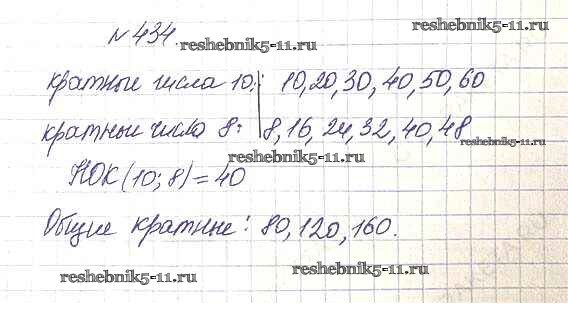 №434.
reshebnik5-11.ru
reshebnik5-11.ru
кратные числа 10: 10, 20, 30, 40, 50, 60
кратные числа 8: 8, 16, 24, 32, 40, 48
reshebnik5-11.ru
reshebnik5-11.ru
НОК(10; 8) = 40
Общие кратные: 80, 120, 160.
reshebnik5-11.ru
reshebnik5-11.ru